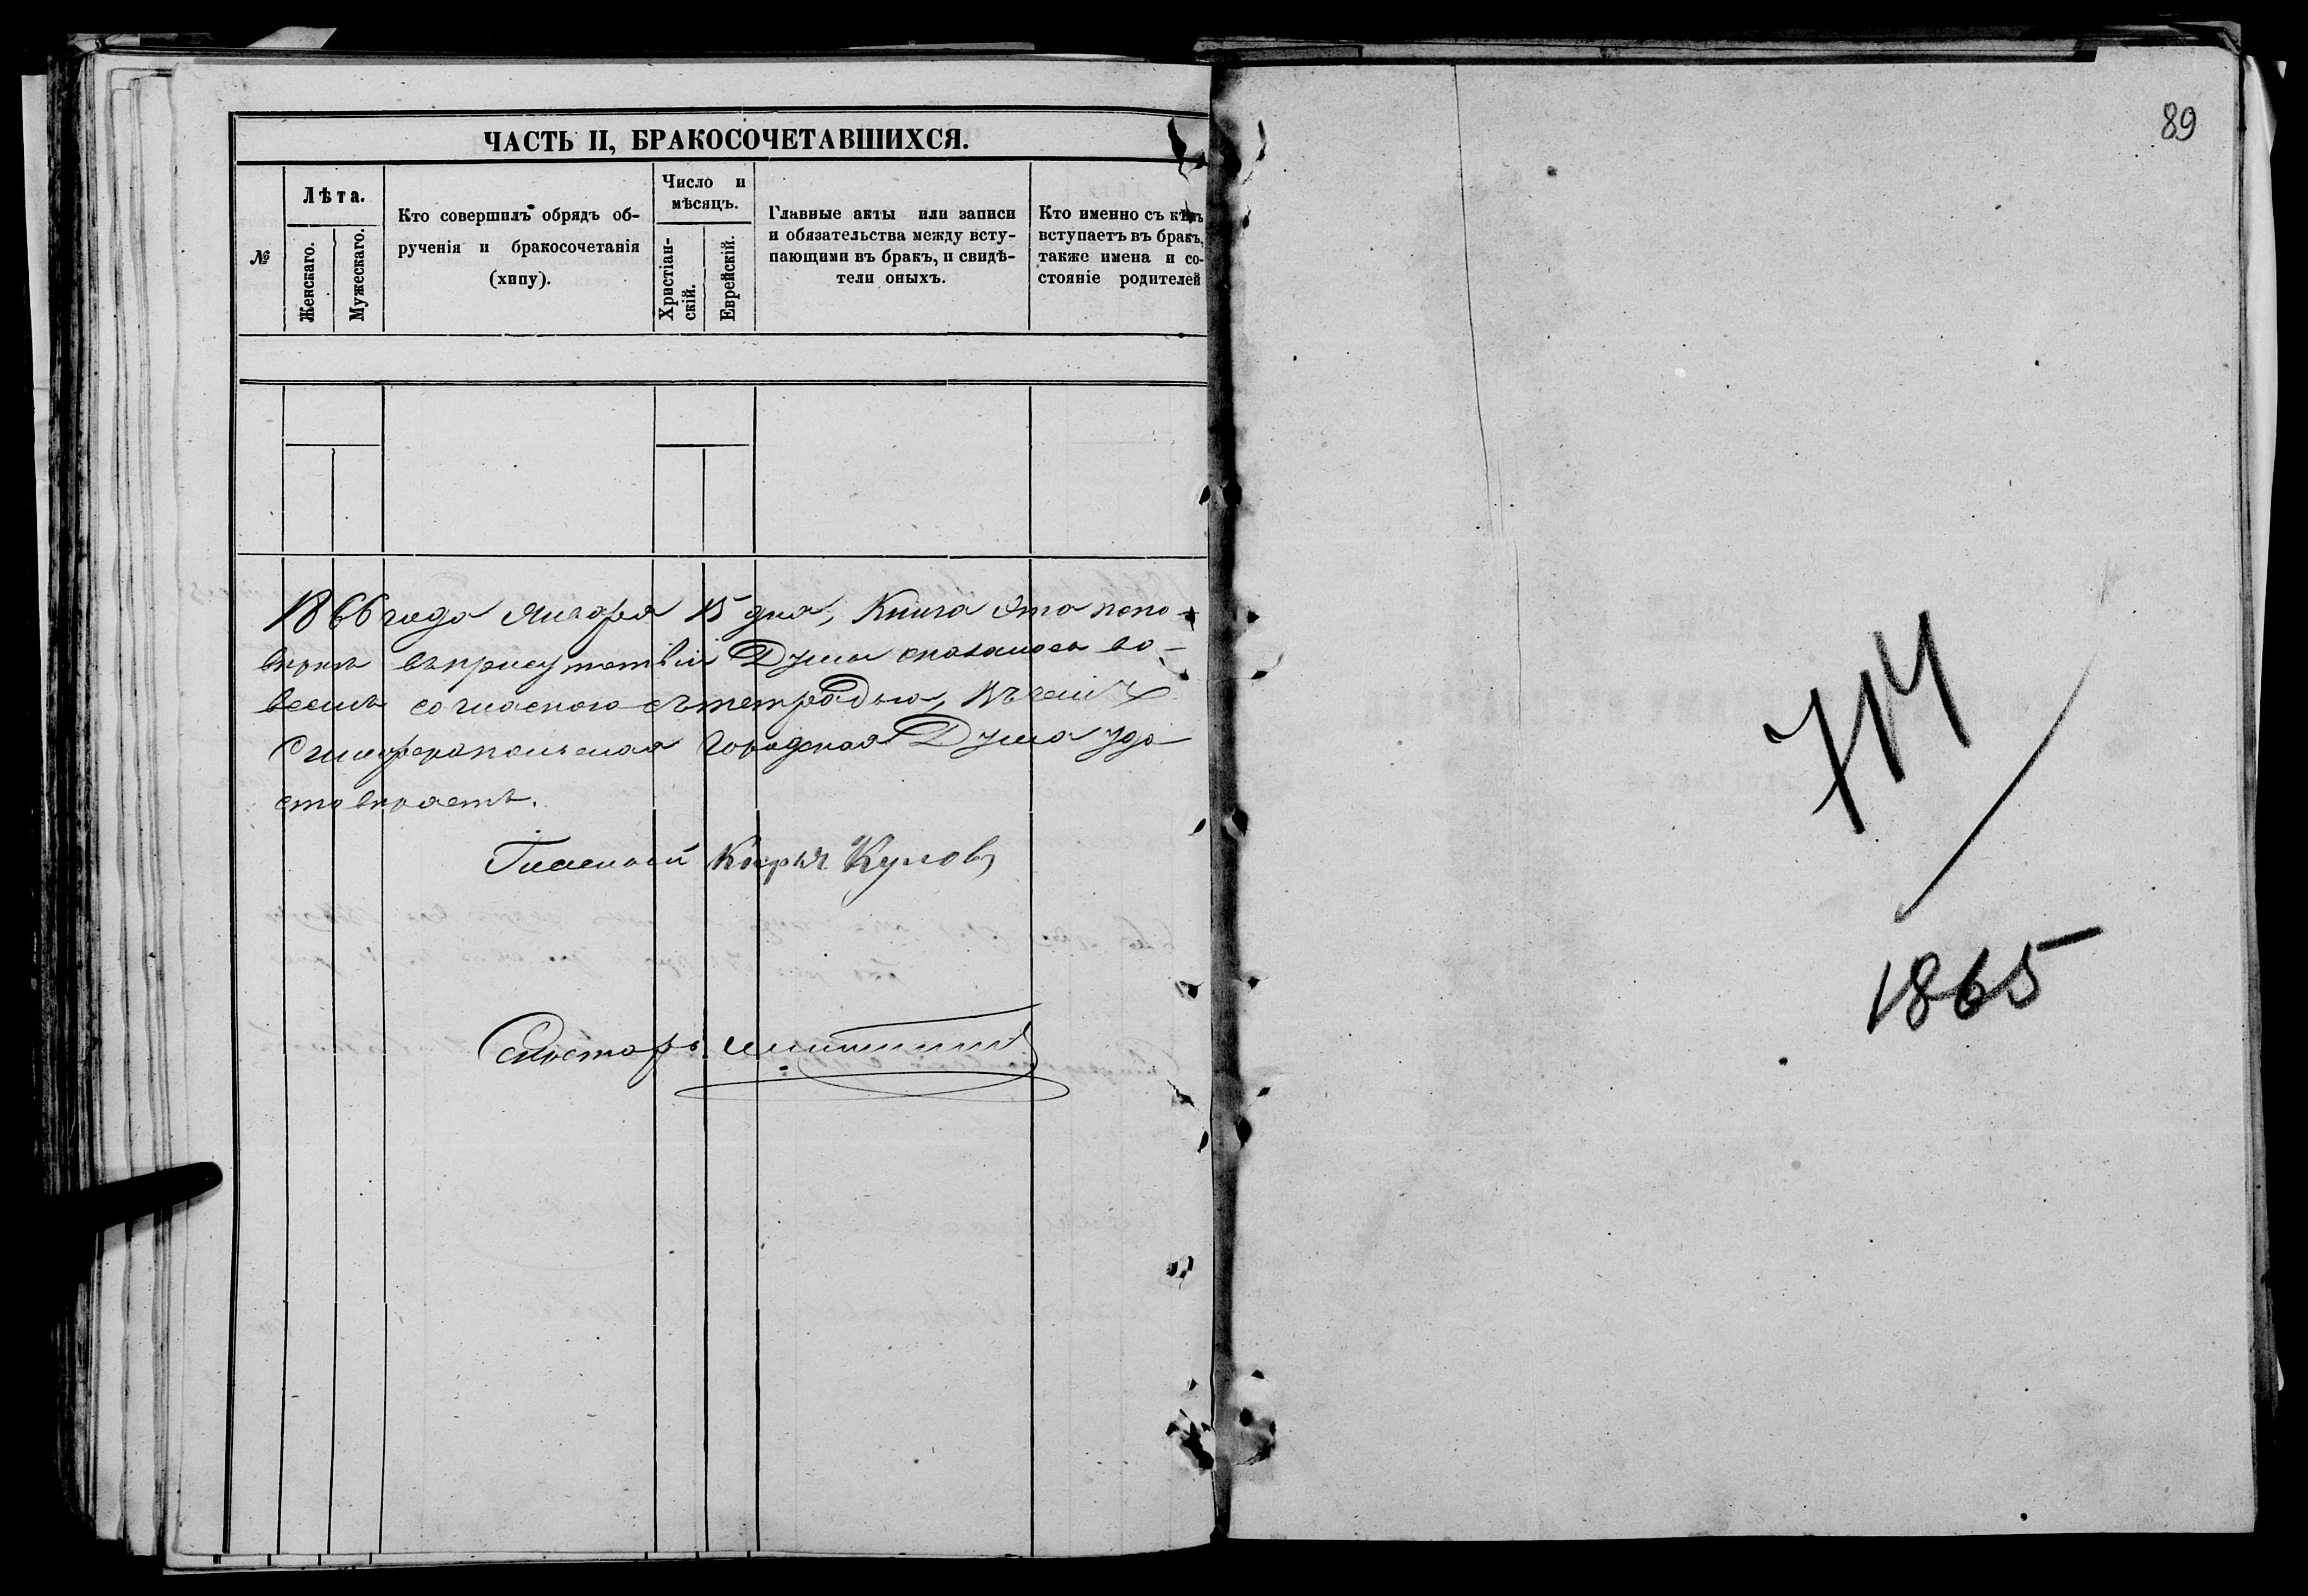 ЧАСТЬ II, БРАКОСОЧЕТАВШИХСЯ.
№
Лѣта.
Женскаго.
Мужескаго.
Кто совершилъ обрядъ об-
рученія и бракосочетанія
(хипу).
Число и
мѣсяцъ.
Христіан-
скій.
Еврейскій.
Главные акты или записи
и обязательства между всту-
пающими въ бракъ, и свидѣ-
тели оныхъ.
Кто именно съ кѣмъ
вступаетъ въ бракъ,
также имена и со-
стояніе родителей
1866 года Января 15 дня, Книга эта по по-
вѣркѣ въ присутствіи Думы оказалась во
всемъ согласною съ тетрадью, въ чемъ
Симферопольская Городская Дума удо-
стовѣряетъ.
Гласный
Секретарь
89
714
1865